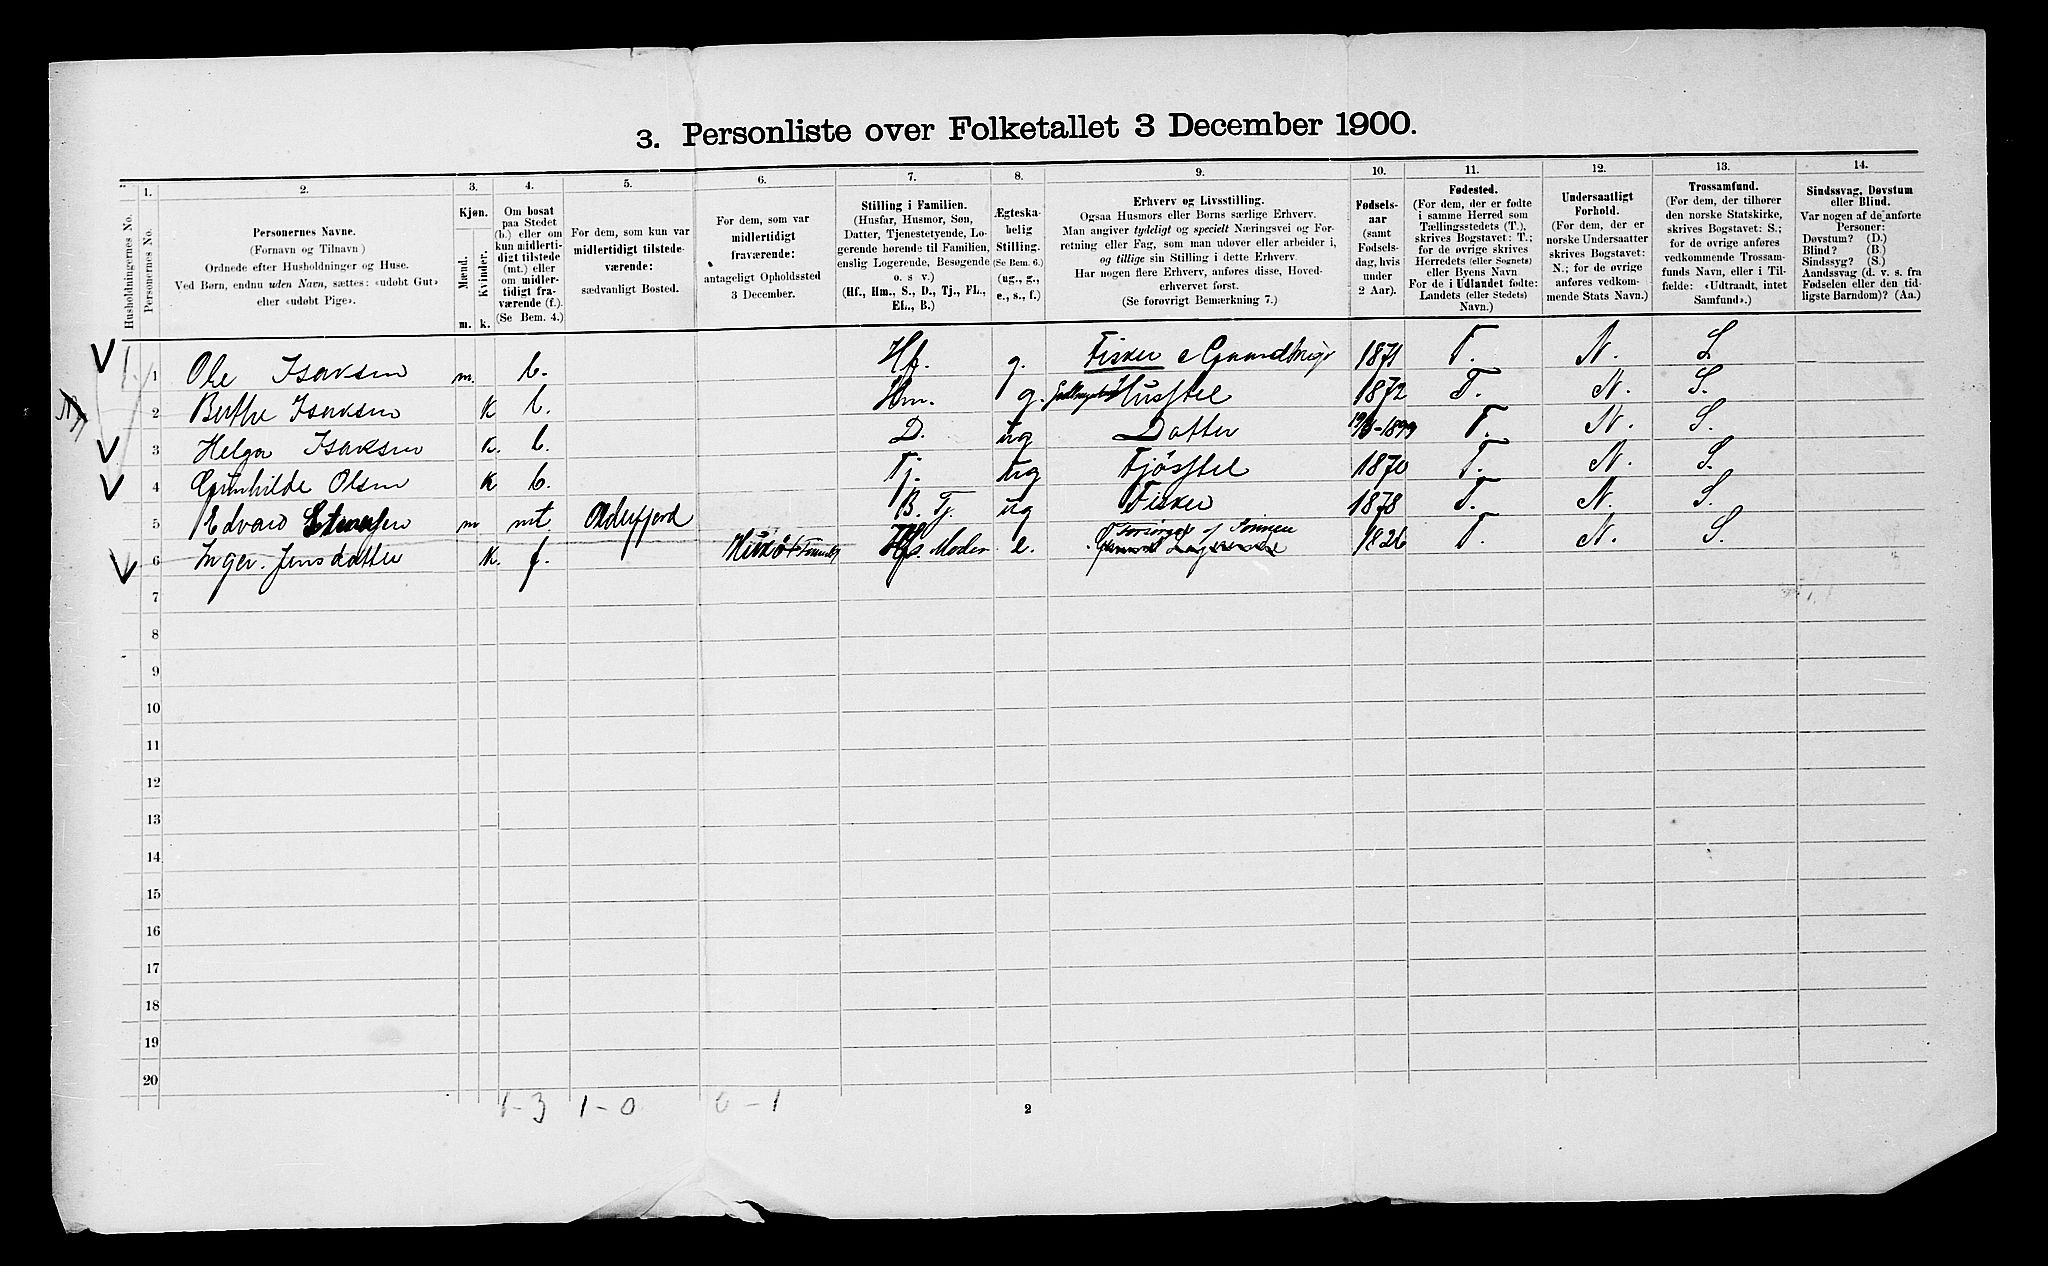 3. Personliste over Folketallet 3 December 1900.
1. 2. 3. 4. 5. 6. 7. 8. 9. 10. 11. 12. 13. 14.
Husholdningernes No.
Personernes No.
Personernes Navne.
(Fornavn og Tilnavn)
Ordnede efter Husholdninger og Huse.
Ved Børn, endnu uden Navn, sættes: «udøbt Gut»
eller «udøbt Pige».
Kjøn.
Mænd.
Kvinder.
m. k.
Om bosat
paa Stedet
(b.) eller om
kun midlerti-
digt tilstede
(mt.) eller
om midler-
tidigt fra-
værende (f.)
(Se Bem. 4.)
For dem, som kun var
midlertidigt tilstede-
værende:
sædvanligt Bosted.
For dem, som var
midlertidigt
fraværende:
antageligt Opholdssted
3 December.
Stilling i Familien.
(Husfar, Husmor, Søn,
Datter, Tjenestetyende, Lo-
gerende hørende til Familien,
enslig Logerende, Besøgende
o. s v.)
(Hf., Hm., S., D., Tj., FL.,
EL., B.)
Ægteska-
belig
Stilling.
(Se Bem. 6.)
(ug., g.,
e., s., f.)
Erhverv og Livsstilling.
Ogsaa Husmors eller Børns særlige Erhverv.
Man angiver tydeligt og specielt Næringsvei og For-
retning eller Fag, som man udøver eller arbeider i,
og tillige sin Stilling i dette Erhverv.
Har nogen flere Erhverv, anføres disse, Hoved-
erhvervet først.
(Se forøvrigt Bemærkning 7.)
Fødsels-
aar
(samt
Fødsels-
dag, hvis
under
2 Aar).
Fødested.
(For dem, der er fødte
i samme Herred som
Tællingsstedets (T.),
skrives Bogstavet: T.;
for de øvrige skrives
Herredets (eller Sognets)
eller Byens Navn
For de i Udlandet fødte:
Landets (eller Stedets)
Navn.)
Undersaatligt
Forhold.
(For dem, der er
norske Undersaatter
skrives Bogstavet:
N.; for de øvrige
anføres vedkom-
mende Stats Navn.)
Trossamfund.
(For dem, der tilhører
den norske Statskirke,
skrives Bogstavet: S.;
for de øvrige anføres
vedkommende Trossam-
funds Navn, eller i Til-
fælde: «Udtraadt, intet
Samfund».)
Sindssvag, Døvstum
eller Blind.
Var nogen af de anførte
Personer:
Døvstum? (D.)
Blind? (B.)
Sindssyg? (S.)
Aandssvag (d. v. s. fra
Fødselen eller den tid-
ligste Barndom)? (Aa.)
1 Ole Isaksen m. b. Hf. g. Fisker Gaardbruger 1871 T. N. S
2 Berthe Isaksen K b. Hm. g. Husstel 1872 T. N. S.
3 Helga Isaksen K. b. D. ug Datter 1899 T. N. S.
4 Gunhilde Olsen K b. Tj. ug Fjøsstel 1870 T. N. S.
5 Edvard m mt. Olderfjord B. Tj. ug Fisker 1878 T. N. S.
6 Inger Jensdatter K. f. Hf's Moder e. Forsørges af Sønnen 1826 T. N. S.
7
8
9
10
11
12
13
14
15
16
17
18
19
20
1-3 1-0 0-1
2